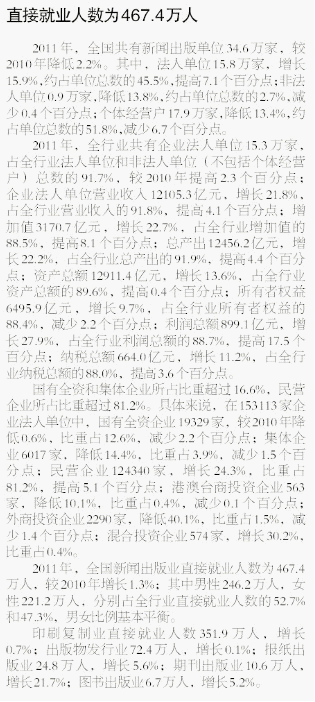 直接就业人数为467.4万人
2011年，全国共有新闻出版单位34.6万家，较
2010年降低2.2%。其中，法人单位15.8万家，增长
15.9%,约占单位总数的45.5%,提高7.1个百分点;非法
人单位0.9万家,降低13.8%,约占单位总数的2.7%,减
少0.4个百分点;个体经营户17.9万家,降低13.4%,约
占单位总数的51.8%,减少6.7个百分点。
2011年，全行业共有企业法人单位15.3万家，
占全行业法人单位和非法人单位（不包括个体经营
户）总数的91.7%，较2010年提高2.3个百分点；
企业法人单位营业收入12105.3亿元，增长21.8%，
占全行业营业收入的91.8%，提高4.1个百分点；增
加值3170.7亿元，增长22.7%，占全行业增加值的
88.5%，提高8.1个百分点；总产出12456.2亿元，增
长22.2%，占全行业总产出的91.9%，提高4.4个百分
点；资产总额12911.4亿元，增长13.6%，占全行业
资产总额的89.6%，提高0.4个百分点；所有者权益
6495.9亿元，增长9.7%，占全行业所有者权益的
88.4%，减少2.2个百分点；利润总额899.1亿元，增
长27.9%，占全行业利润总额的88.7%，提高17.5个
百分点；纳税总额664.0亿元，增长11.2%，占全行
业纳税总额的88.0%，提高3.6个百分点。
国有全资和集体企业所占比重超过16.6%，民营
企业所占比重超过81.2%。具体来说，在153113家企
业法人单位中，国有全资企业19329家，较2010年降
低0.6%，比重占12.6%，减少2.2个百分点；集体企
业6017家，降低14.4%，比重占3.9%，减少1.5个百
分点；民营企业124340家，增长24.3%，比重占
81.2%，提高5.1个百分点；港澳台商投资企业563
家，降低10.1%，比重占0.4%，减少0.1个百分点；
外商投资企业2290家，降低40.1%，比重占1.5%，减
少1.4个百分点；混合投资企业574家，增长30.2%，
比重占0.4%。
2011年，全国新闻出版业直接就业人数为467.4
万人，较2010年增长1.3%；其中男性246.2万人，女
性221.2万人，分别占全行业直接就业人数的52.7%
和47.3%，男女比例基本平衡。
印刷复制业直接就业人数351.9万人，增长
0.7%；出版物发行业72.4万人，增长0.1%；报纸出
版业24.8万人，增长5.6%；期刊出版业10.6万人，
增长21.7%；图书出版业6.7万人，增长5.2%。